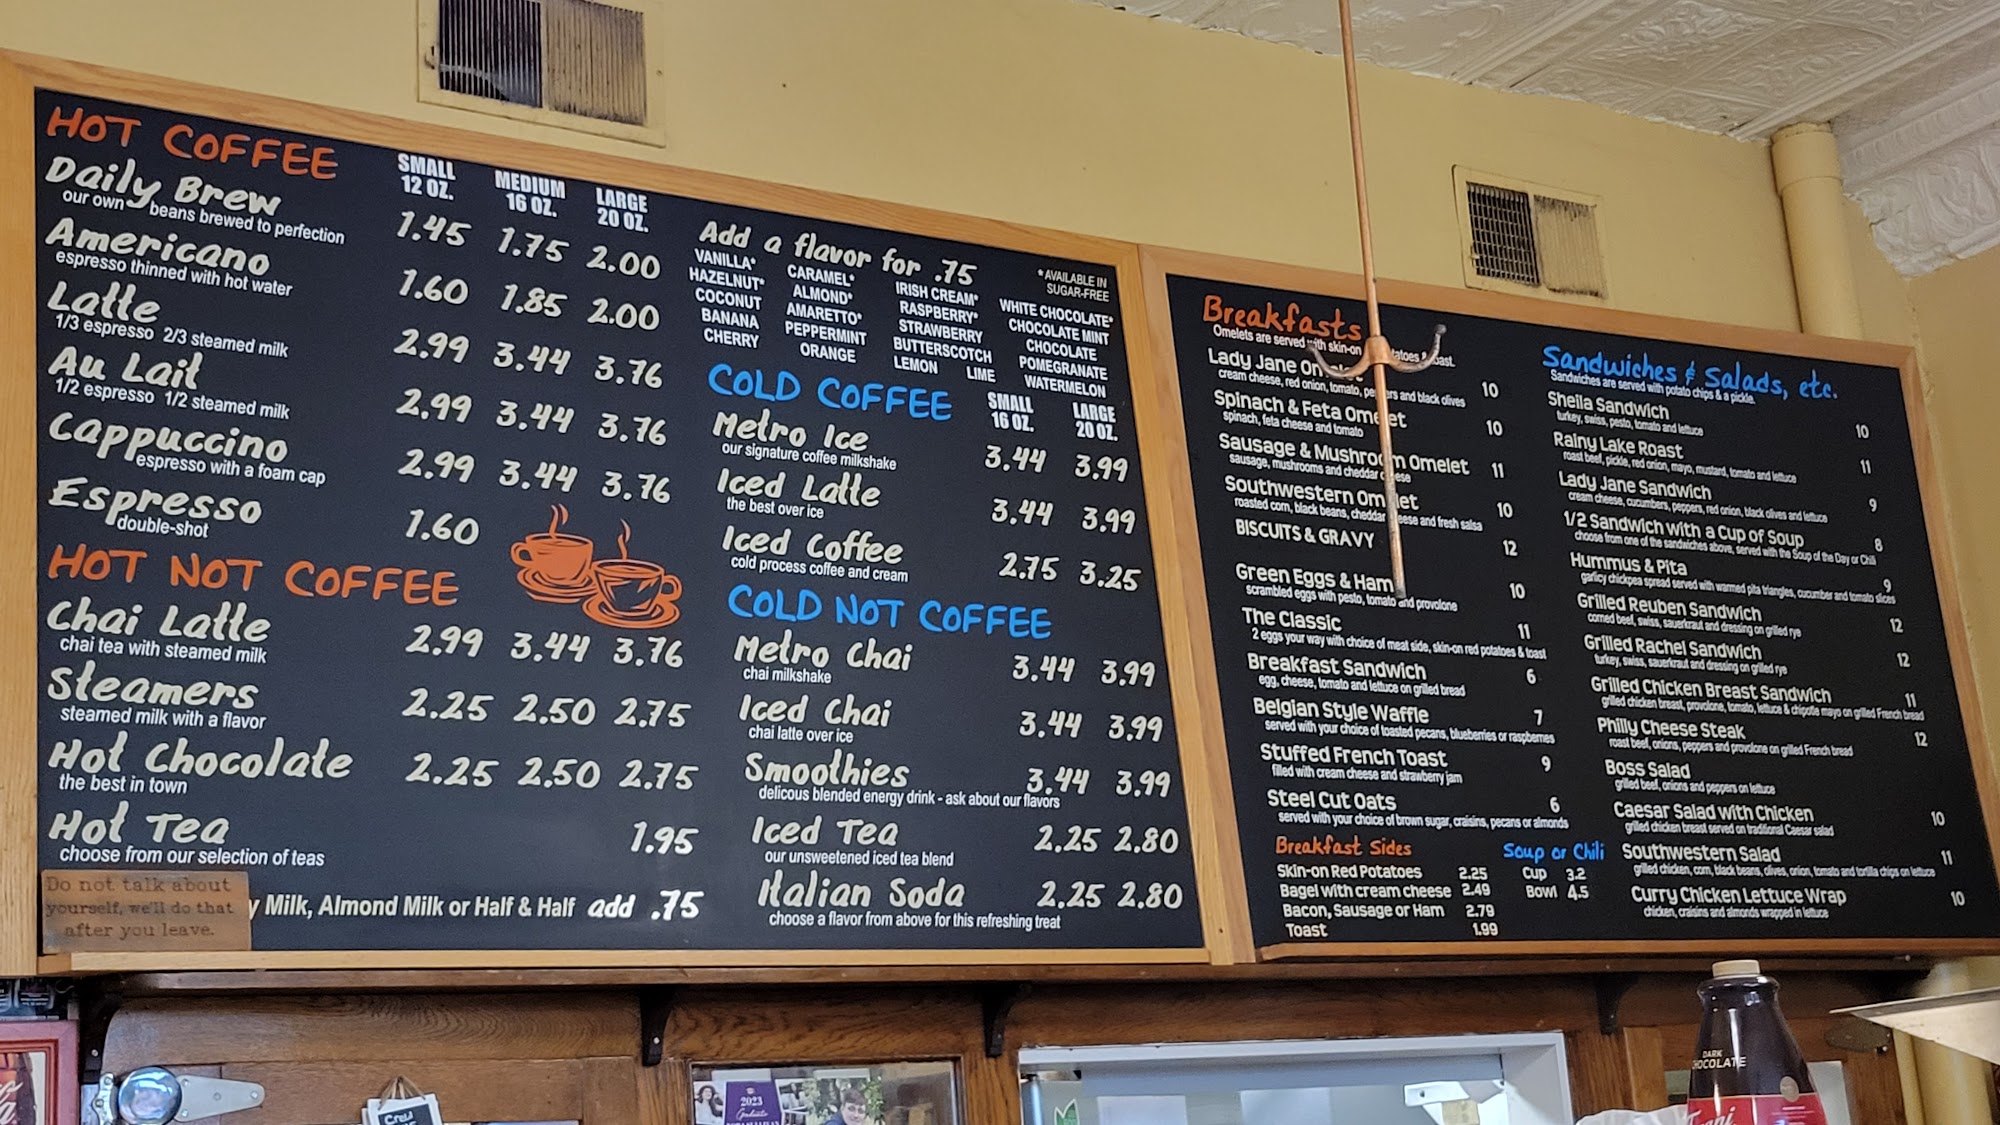 HOT COFFEE
SMALL 12 OZ.
MEDIUM 16 OZ.
LARGE 20 OZ.
Daily Brew 1.45 1.75 2.00
our own beans brewed to perfection
Americano 1.60 1.85 2.00
espresso thinned with hot water
Latte 2.99 3.44 3.76
1/3 espresso 2/3 steamed milk
Au Lait 2.99 3.44 3.76
1/2 espresso 1/2 steamed milk
Cappuccino 2.99 3.44 3.76
espresso with a foam cap
Espresso 1.60
double-shot
HOT NOT COFFEE
Chai Latte 2.99 3.44 3.76
chai tea with steamed milk
Steamers 2.25 2.50 2.75
steamed milk with a flavor
Hot Chocolate 2.25 2.50 2.75
the best in town
Hot Tea 1.95
choose from our selection of teas
Milk, Almond Milk or Half & Half add .75
Do not talk about
yourself, we'll do that
after you leave.
Add a flavor for .75
*AVAILABLE IN
SUGAR-FREE
VANILLA* CARAMEL* IRISH CREAM* WHITE CHOCOLATE*
HAZELNUT* ALMOND* RASPBERRY* CHOCOLATE MINT
COCONUT AMARETTO* STRAWBERRY CHOCOLATE
BANANA PEPPERMINT BUTTERSCOTCH POMEGRANATE
CHERRY ORANGE LEMON LIME WATERMELON
COLD COFFEE
SMALL 16 OZ.
LARGE 20 OZ.
Metro Ice 3.44 3.99
our signature coffee milkshake
Iced Latte 3.44 3.99
the best over ice
Iced Coffee 2.75 3.25
cold process coffee and cream
COLD NOT COFFEE
Metro Chai 3.44 3.99
chai milkshake
Iced Chai 3.44 3.99
chai latte over ice
Smoothies 3.44 3.99
delicous blended energy drink - ask about our flavors
Iced Tea 2.25 2.80
our unsweetened iced tea blend
Italian Soda 2.25 2.80
choose a flavor from above for this refreshing treat
Breakfasts
Omelets are served with skin-on
Lady Jane Omelet 10
cream cheese, red onion, tomato, peppers and black olives
Spinach & Feta Omelet 10
spinach, feta cheese and tomato
Sausage & Mushroom Omelet 11
sausage, mushrooms and cheddar cheese
Southwestern Omelet 10
roasted corn, black beans, cheddar cheese and fresh salsa
BISCUITS & GRAVY 12
Green Eggs & Ham 10
scrambled eggs with pesto, tomato and provolone
The Classic 11
2 eggs your way with choice of meat side, skin-on red potatoes & toast
Breakfast Sandwich 6
egg, cheese, tomato and lettuce on grilled bread
Belgian Style Waffle 7
served with your choice of toasted pecans, blueberries or raspberries
Stuffed French Toast 9
filled with cream cheese and strawberry jam
Steel Cut Oats 6
served with your choice of brown sugar, craisins, pecans or almonds
Breakfast Sides
Skin-on Red Potatoes 2.25
Bagel with cream cheese 2.49
Bacon, Sausage or Ham 2.79
Toast 1.99
Soup or Chili
Cup 3.2
Bowl 4.5
Sandwiches & Salads, etc.
Sandwiches are served with potato chips & a pickle.
Sheila Sandwich 10
turkey, swiss, pesto, tomato and lettuce
Rainy Lake Roast 11
roast beef, pickle, red onion, mayo, mustard, tomato and lettuce
Lady Jane Sandwich 9
cream cheese, cucumbers, peppers, red onion, black olives and lettuce
1/2 Sandwich with a Cup of Soup 8
choose from one of the sandwiches above, served with the Soup of the Day or Chili
Hummus & Pita 9
garlicy chickpea spread served with warmed pita triangles, cucumber and tomato slices
Grilled Reuben Sandwich 12
corned beef, swiss, sauerkraut and dressing on grilled rye
Grilled Rachel Sandwich 12
turkey, swiss, sauerkraut and dressing on grilled rye
Grilled Chicken Breast Sandwich 11
grilled chicken breast, provolone, tomato, lettuce & chipotle mayo on grilled French bread
Philly Cheese Steak 12
roast beef, onions, peppers and provolone on grilled French bread
Boss Salad
grilled beef, onions and peppers on lettuce
Caesar Salad with Chicken 10
grilled chicken breast served on traditional Caesar salad
Southwestern Salad 11
grilled chicken, corn, black beans, olives, onion, tomato and tortilla chips on lettuce
Curry Chicken Lettuce Wrap 10
chicken, craisins and almonds wrapped in lettuce
2023
DARK
CHOCOLATE